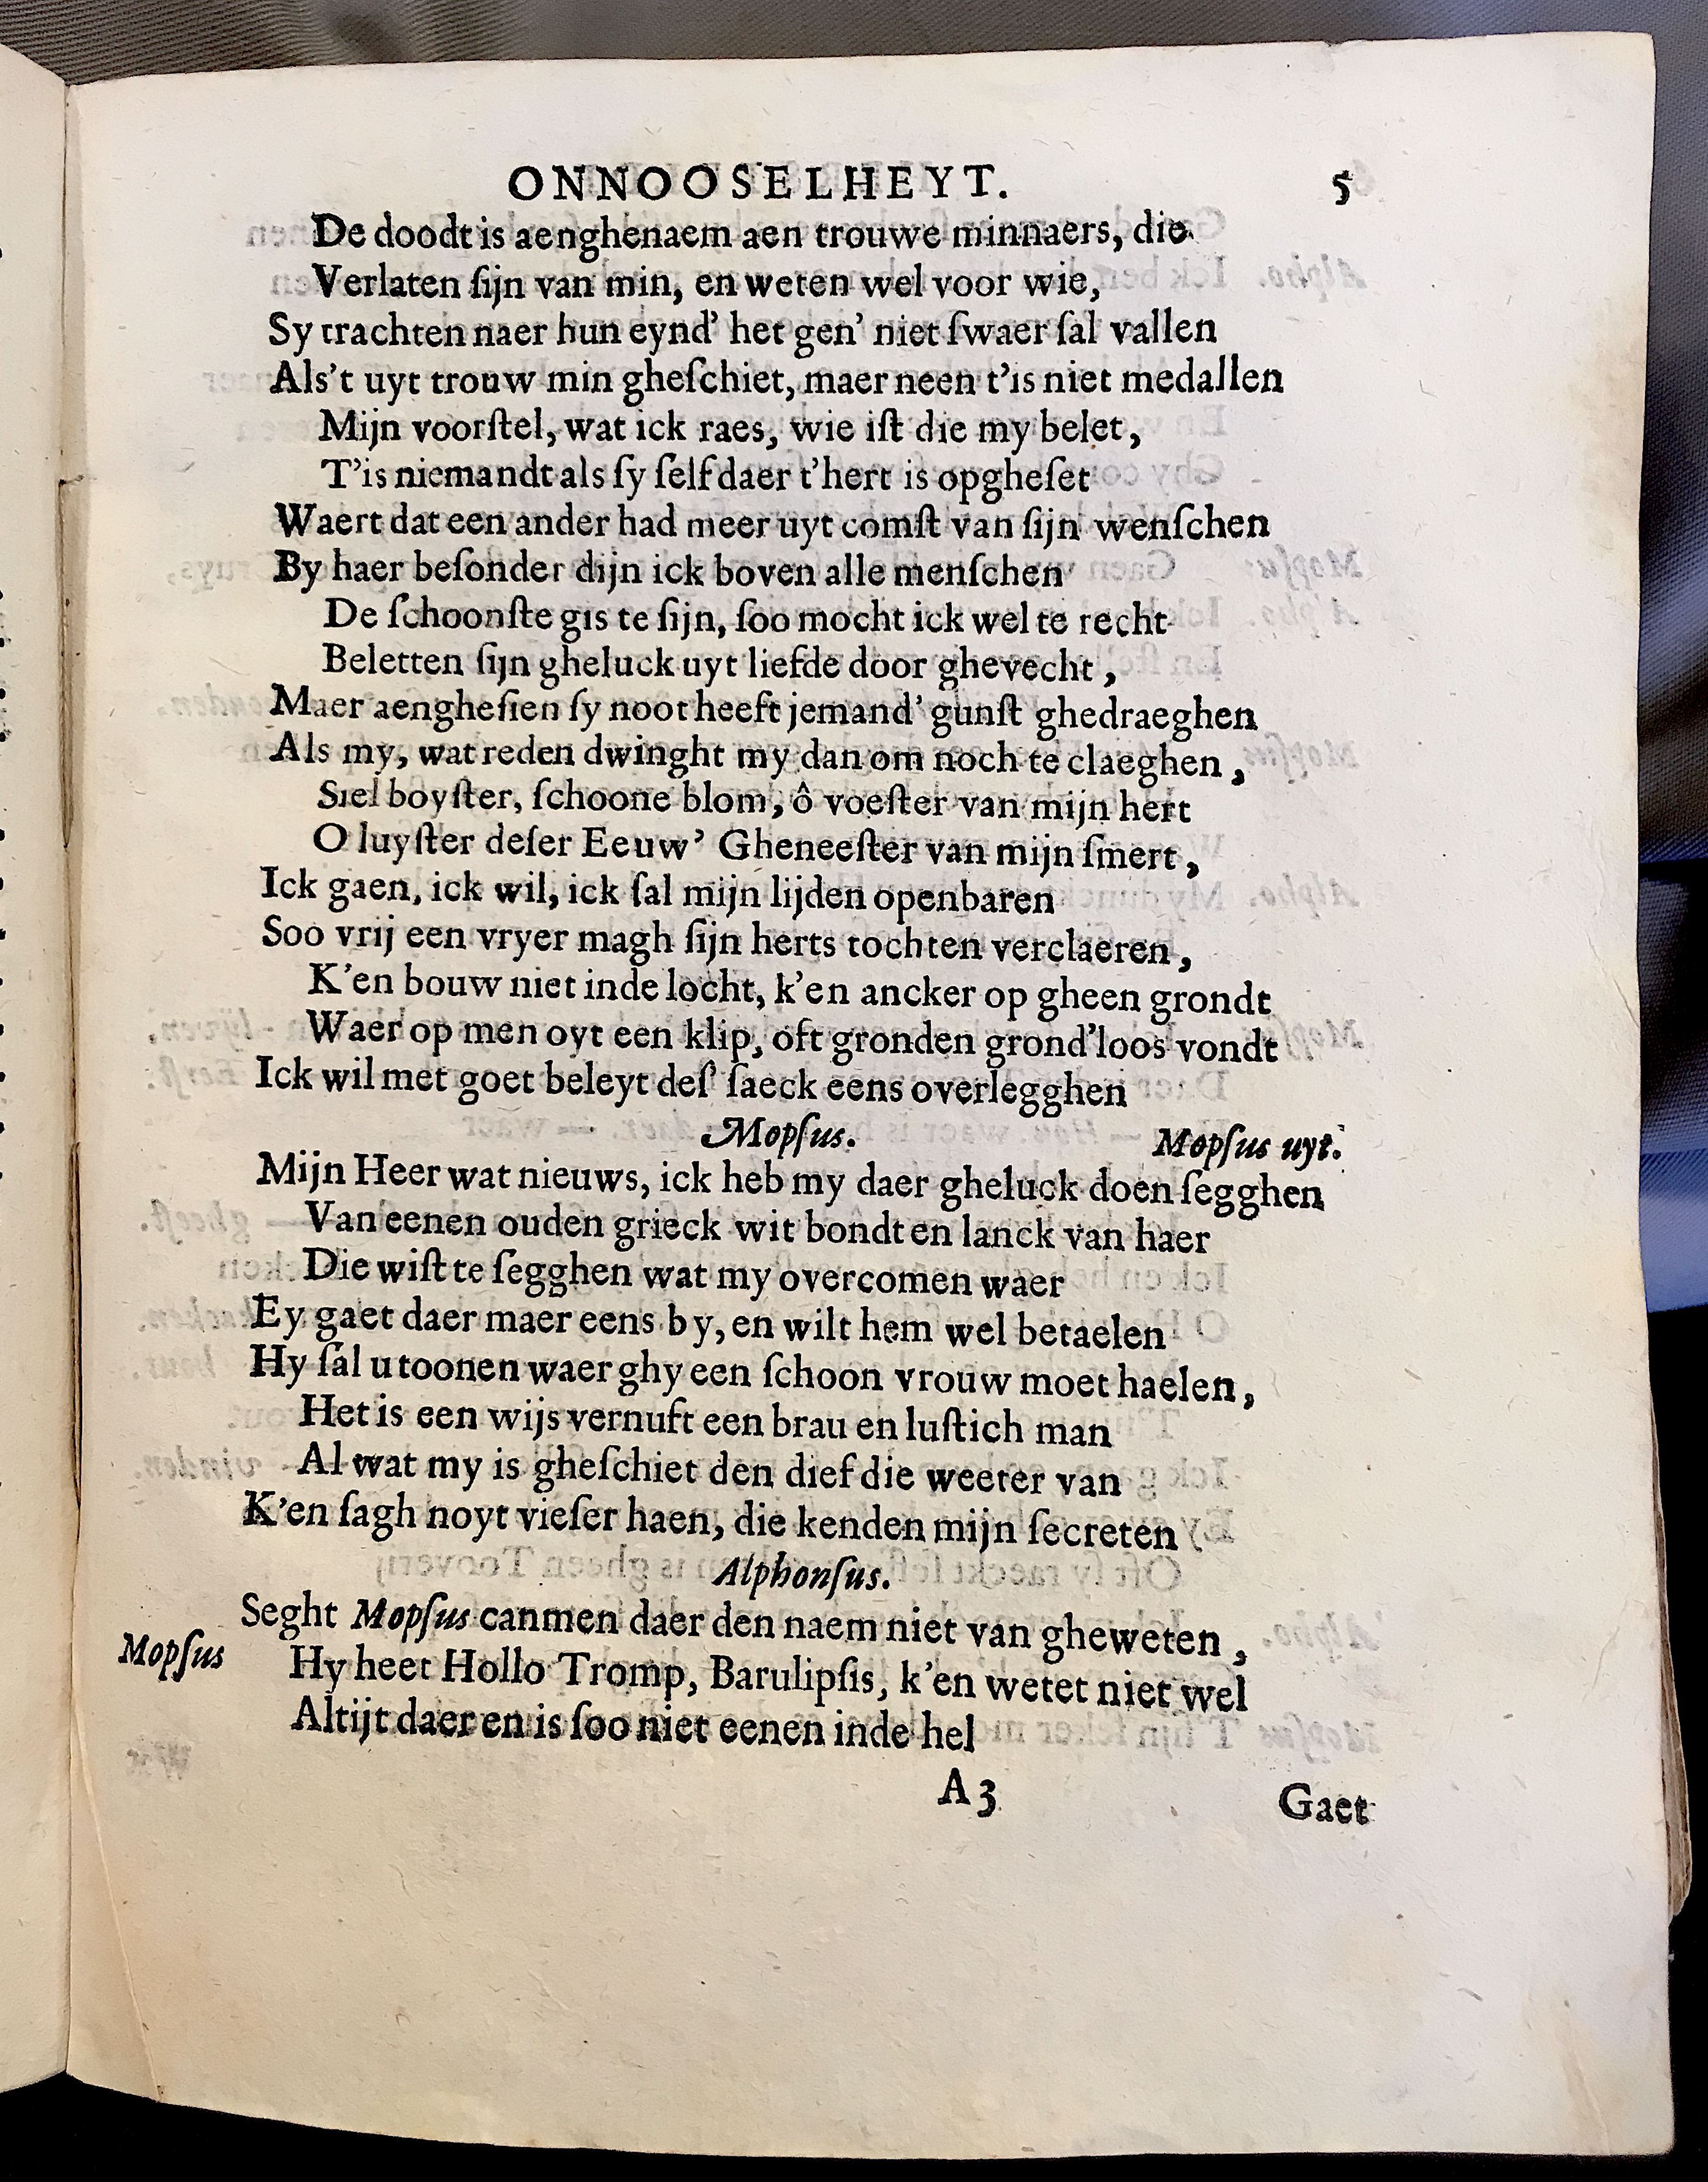 ONNOOSELHEYT. 5
De doodt is aenghenaem aen trouwe minnaers, die
Verlaten ſijn van min, en weten wel voor wie,
Sy trachten naer hun eynd' het gen' niet ſwaer ſal vallen
Als't uyt trouw min gheſchiet, maer neen t'is niet medallen
Mijn voorſtel, wat ick raes, wie iſt die my belet,
T'is niemandt als ſy ſelf daer t'hert is opgheſet
Waert dat een ander had meer uyt comſt van ſijn wenſchen
By haer beſonder dijn ick boven alle menſchen
De ſchoonſte gis te ſijn, ſoo mocht ick wel te recht
Beletten ſijn gheluck uyt liefde door ghevecht,
Maer aengheſien ſy noot heeft jemand' gunſt ghedraeghen
Als my, wat reden dwinght my dan om noch te claeghen,
Siel boyſter, ſchoone blom, ô voeſter van mijn hert
O luyſter deſer Eeuw' Gheneeſter van mijn ſmert,
Ick gaen, ick wil, ick ſal mijn lijden openbaren
Soo vrij een vryer magh ſijn herts tochten verclaeren,
K'en bouw niet inde locht, k'en ancker op gheen grondt
Waer op men oyt een klip, oft gronden grond'loos vondt
Ick wil met goet beleyt deſ' ſaeck eens overlegghen
Mopſus. Mopſus uyt.
Mijn Heer wat nieuws, ick heb my daer gheluck doen ſegghen
Van eenen ouden grieck wit bondt en lanck van haer
Die wiſt te ſegghen wat my overcomen waer
Ey gaet daer maer eens by, en wilt hem wel betaelen
Hy ſal u toonen waer ghy een ſchoon vrouw moet haelen,
Het is een wijs vernuft een brau en luſtich man
Al wat my is gheſchiet den dief die weeter van
K'en ſagh noyt vieſer haen, die kenden mijn ſecreten
Alphonſus.
Seght Mopſus canmen daer den naem niet van gheweten,
Mopſus Hy heet Hollo Tromp, Barulipſis, k'en wetet niet wel
Altijt daer en is ſoo niet eenen inde hel
A 3 Gaet